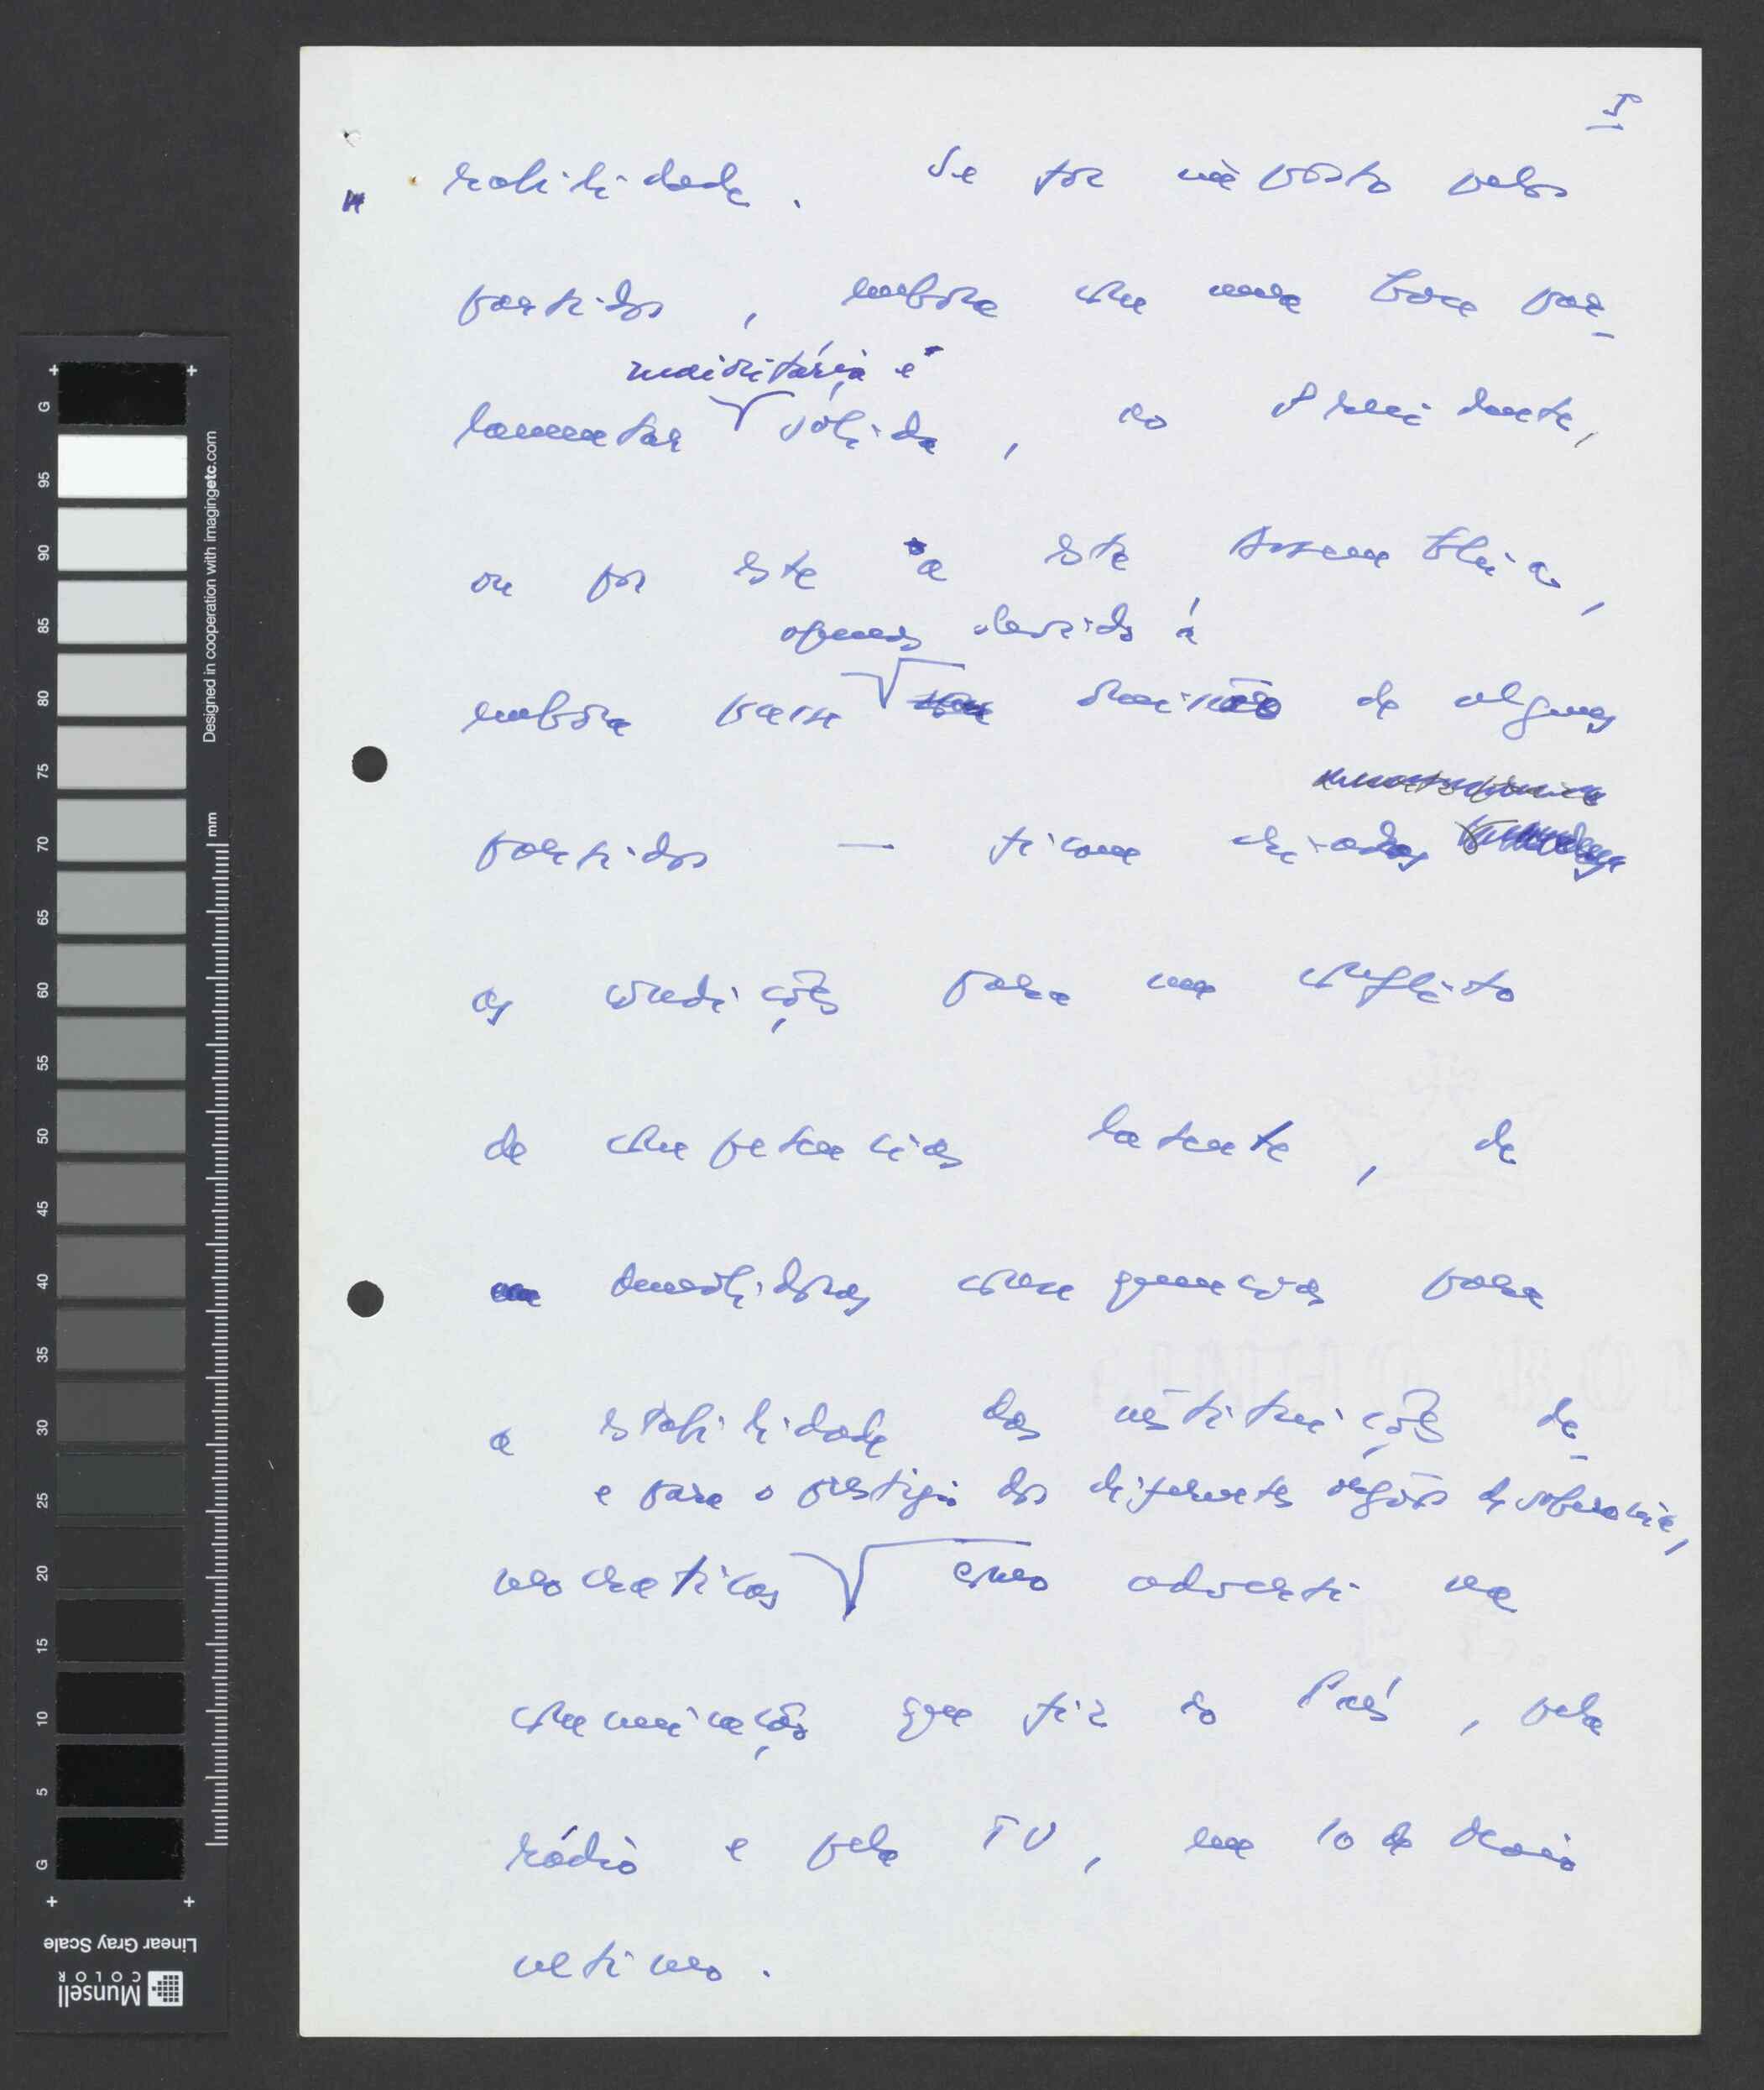 5
rabilidade. Se for imposto pelos
partidos, embora com uma base par-
maioritária e
lamentar sólida, ao Presidente,
ou por este a esta Assembleia,
apenas devido à
embora com base omissão de alguns
partidos — ficam criadas
as condições para um conflito
de competências latente, de
demolidoras consequências para
a estabilidade das instituições de-
e para o prestígio dos diferentes órgãos de soberania,
mocráticas como adverti na
comunicação que fiz ao País, pela
rádio e pela TV, em 10 de Maio
último.
Designed in cooperation with imagingetc.com
mm
G
95
90
85
80
75
70
65
60
55
50
45
40
35
30
25
20
15
10
5
G
Linear Gray Scale
Munsell
COLOR